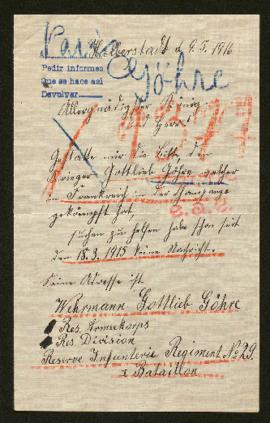 Halberstadt d 9. 5. 1916
Pedir informes
Que se hace así
Devolver
Göhre
Allergnädigster König
Herr!
Gestatte mir die Bitte, den
Krieger Gottlieb Göhre welcher
in Frankreich in der
gekämpft hat,
suchen zu helfen habe schon seit
den 18. 3. 1915 keine Nachricht.
Seine Adresse ist
Wehrmann Gottlieb Göhre
Res. Armeekorps
Res. Division
Reserve Infanterie Regiment No 29.
Bataillon